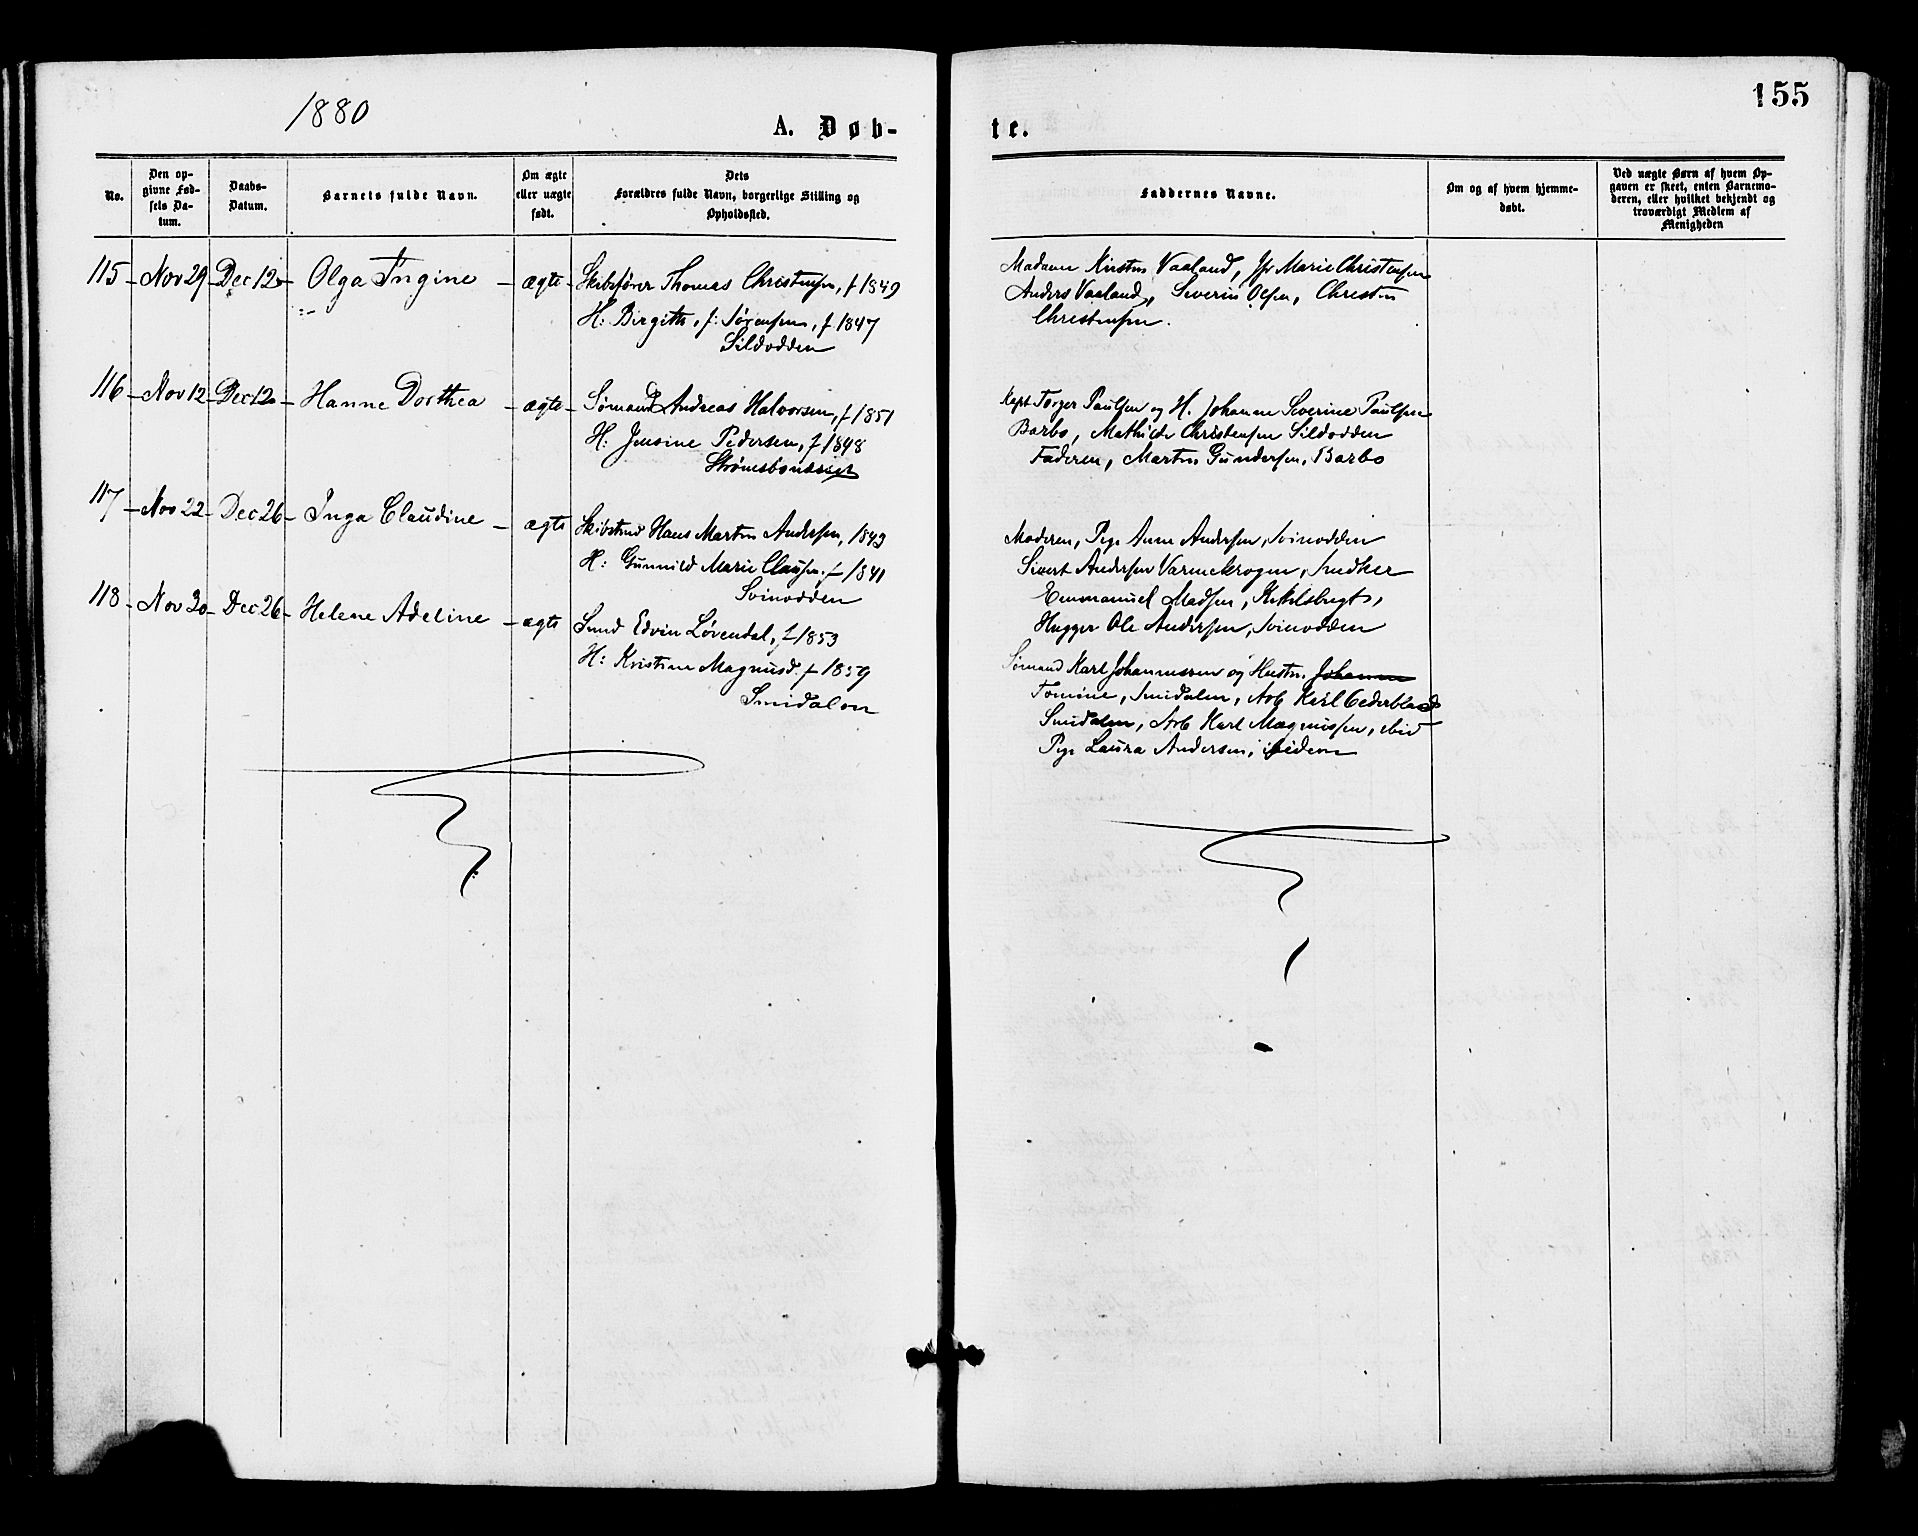 155
1880
A. Døb-
te.
No.
Den op-
givne Fød-
sels Da-
tum.
Daabs-
Datum.
Barnets fulde Navn.
Om ægte
eller uægte
født.
Dets
Forældres fulde Navn, borgerlige Stilling og
Opholdssted.
Faddernes Navne.
Om og af hvem hjemme-
døbt.
Ved uægte Børn af hvem Op-
gaven er skeet, enten Barnemo-
deren, eller hvilket bekjendt og
troværdigt Medlem af
Menigheden
115 - Nov 29 - Dec 12 - Olga Ingine - ægte - Skibsfører Thomas Christensen, f 1849
H: Birgitte, f: Sørensen, f 1847
Sildodden
Madame Kirstin Vaaland, Marie Christensen
Anders Vaaland, Severin Olsen, Christen
Christensen.
116 - Nov 12 - Dec 12 - Hanne Dorthea - ægte - Sømand Andreas Halvorsen, f 1851
H: Jensine Pedersen, f 1848
Strømsbonæsset
Kapt Torger Paulsen og H. Johanne Severine Paulsen
Barbo, Mathilde Christensen Sildodden
Faderen, Martin Gundersen, Barbo
117 - Nov 22 - Dec 26 - Inga Claudine - ægte Skibstmd Hans Martin Andersen, 1843
H: Gunnild Marie Clausen f 1841
Svinodden
Moderen, Pige Anne Andersen, Svinodden
Sivert Andersen Varmekrogen, Snedker
Emmanuel Madsen, Kittelsbugt,
Hugger Ole Andersen, Svinodden
118 - Nov 30 - Dec 26 - Helene Adeline - ægte Smed Edvin Løvendal, f 1853
H: Kristine Magnusd. f 1859
Smidalen
Sømand Karl Johannessen og Hustru Johanne
Tomine, Smidalen, Arb Karl Cederblad
Smidalen, Arb Karl Magnussen, ibid
Pige Laura Andersen, ibidem